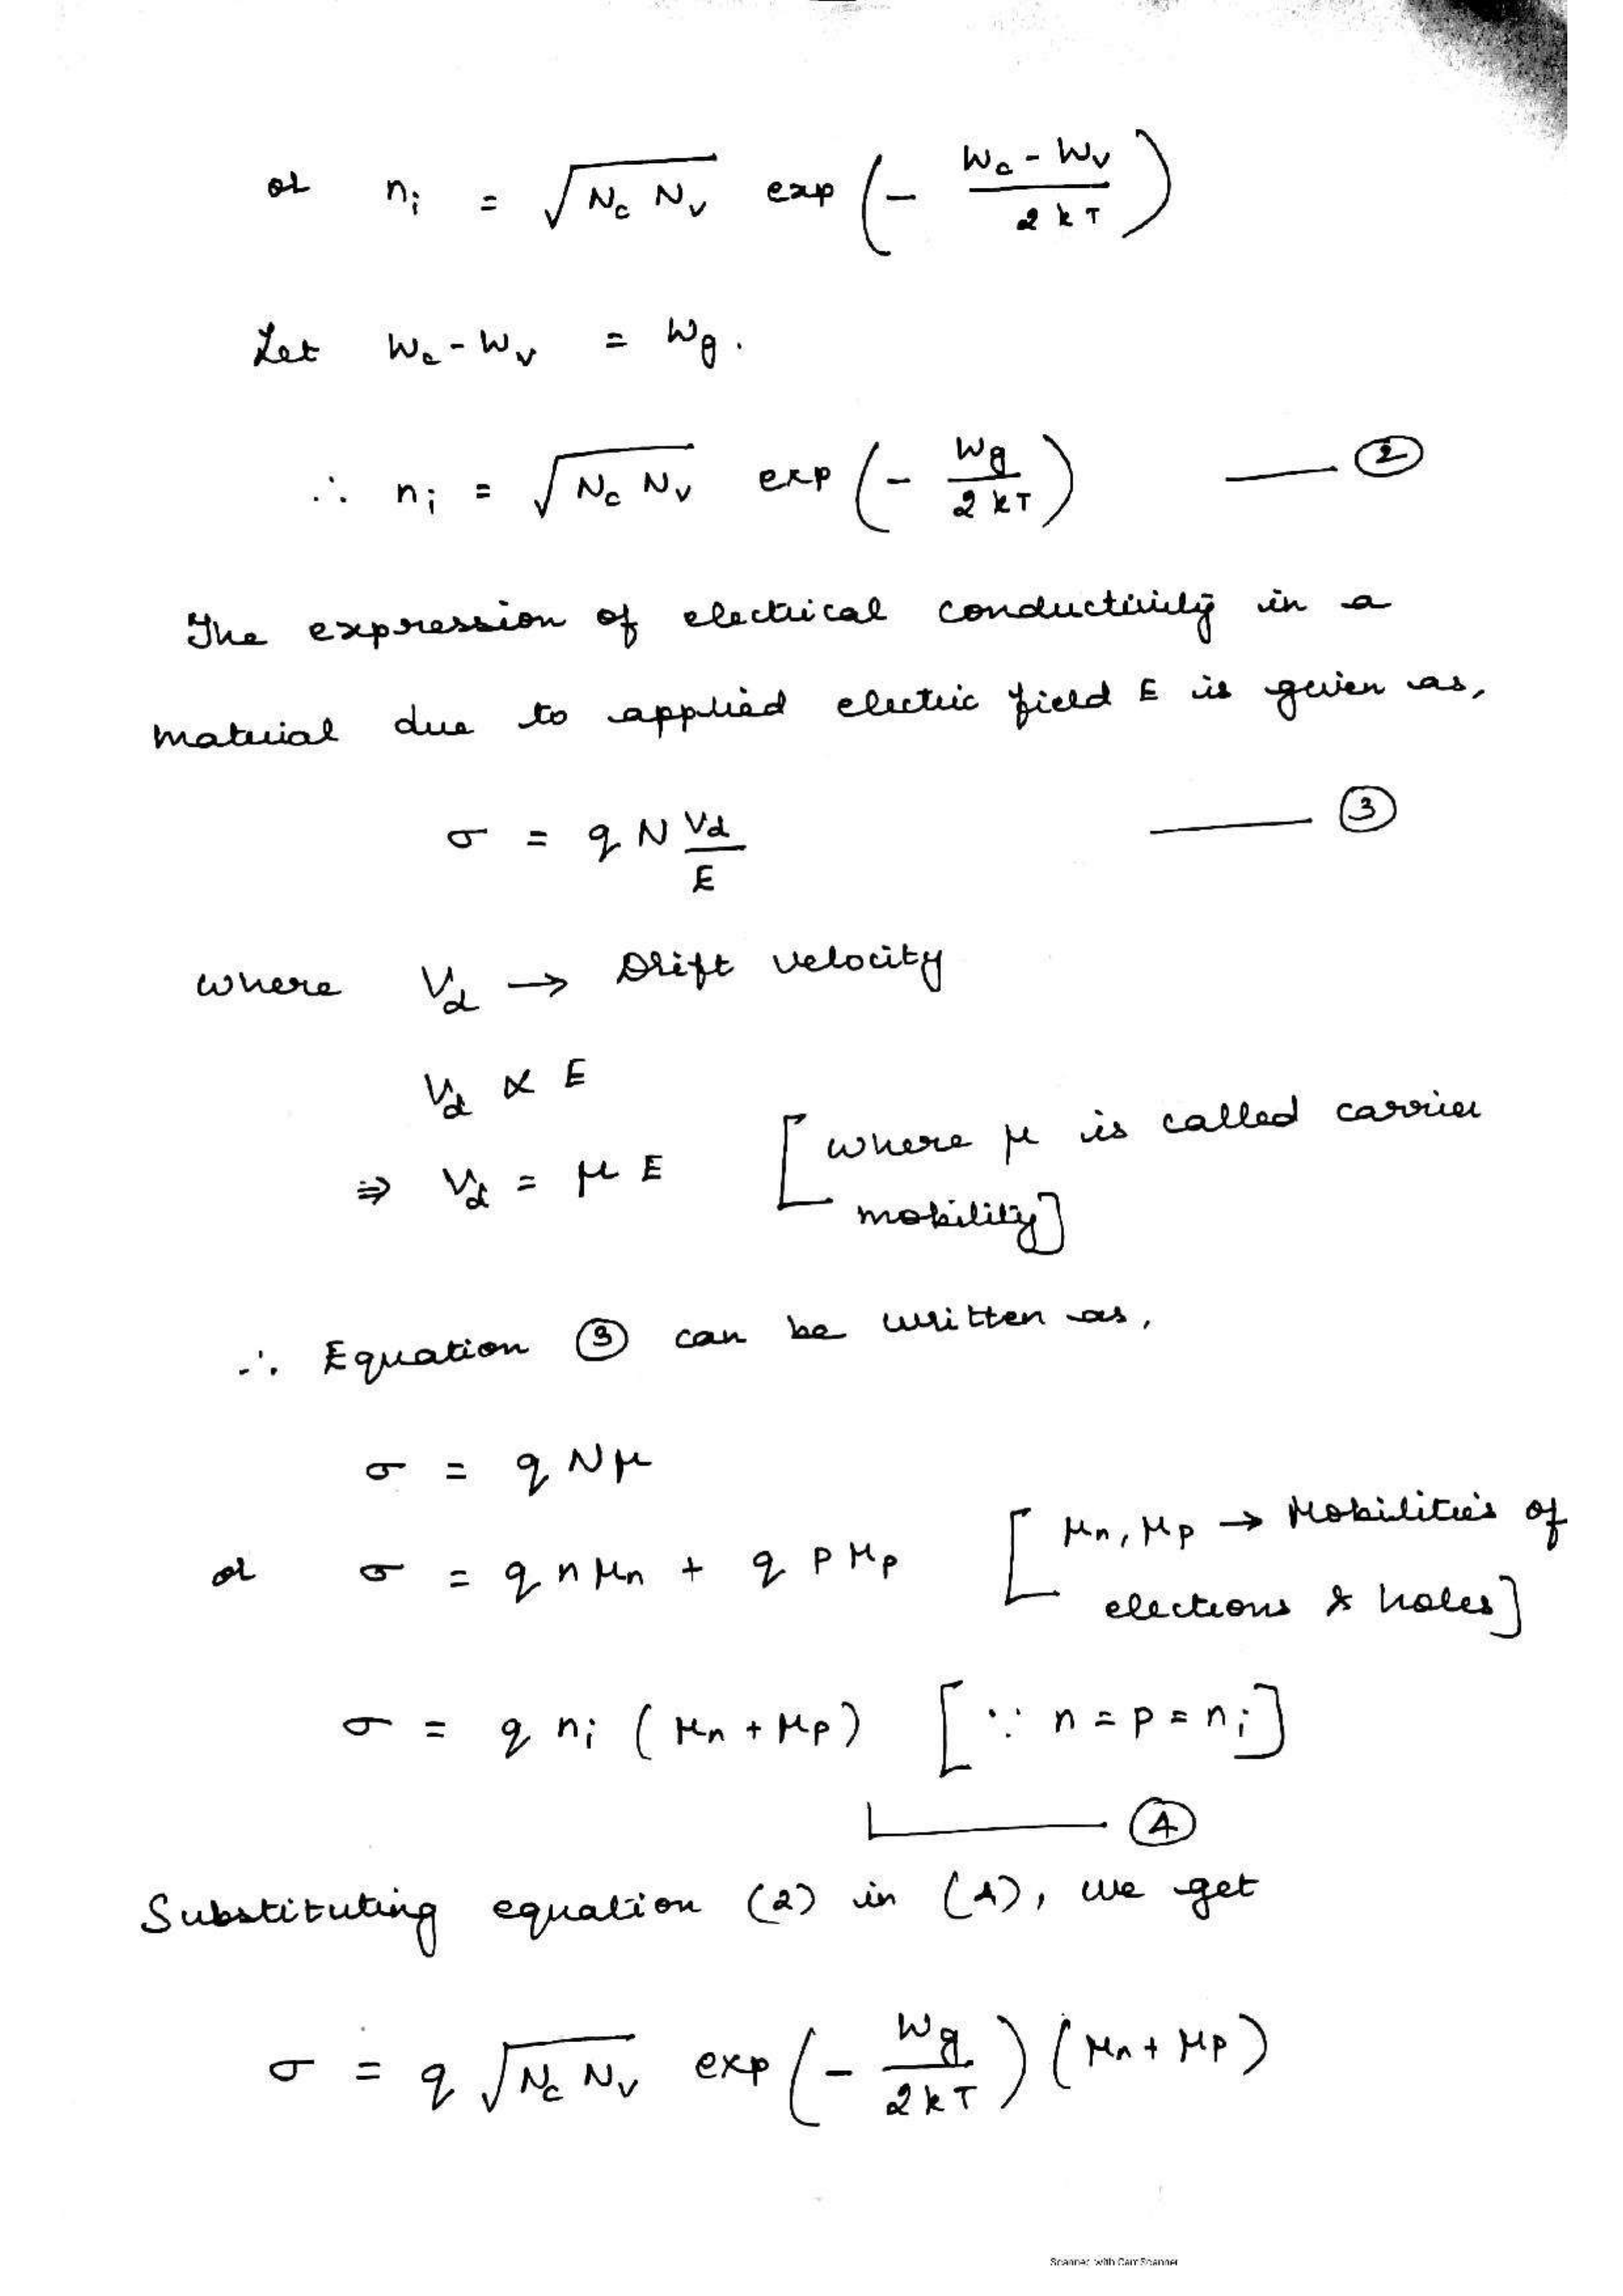 or n_i = √(N_c N_v) exp(- (W_c - W_v)/(2kT))
Let W_c - W_v = W_g.
∴ n_i = √(N_c N_v) exp(- W_g/(2kT)) — ②
The expression of electrical conductivity in a
material due to applied electric field E is given as,
σ = q N V_d/E — ③
where V_d → Drift velocity
V_d ∝ E
⇒ V_d = μ E [where μ is called carrier
mobility]
∴ Equation ③ can be written as,
σ = q N μ
or σ = q n μ_n + q p μ_p [μ_n, μ_p → Mobilities of
electrons & holes]
σ = q n_i (μ_n + μ_p) [∵ n = p = n_i]
— ④
Substituting equation (2) in (4), we get
σ = q √(N_c N_v) exp(- W_g/(2kT)) (μ_n + μ_p)
Scanned with CamScanner